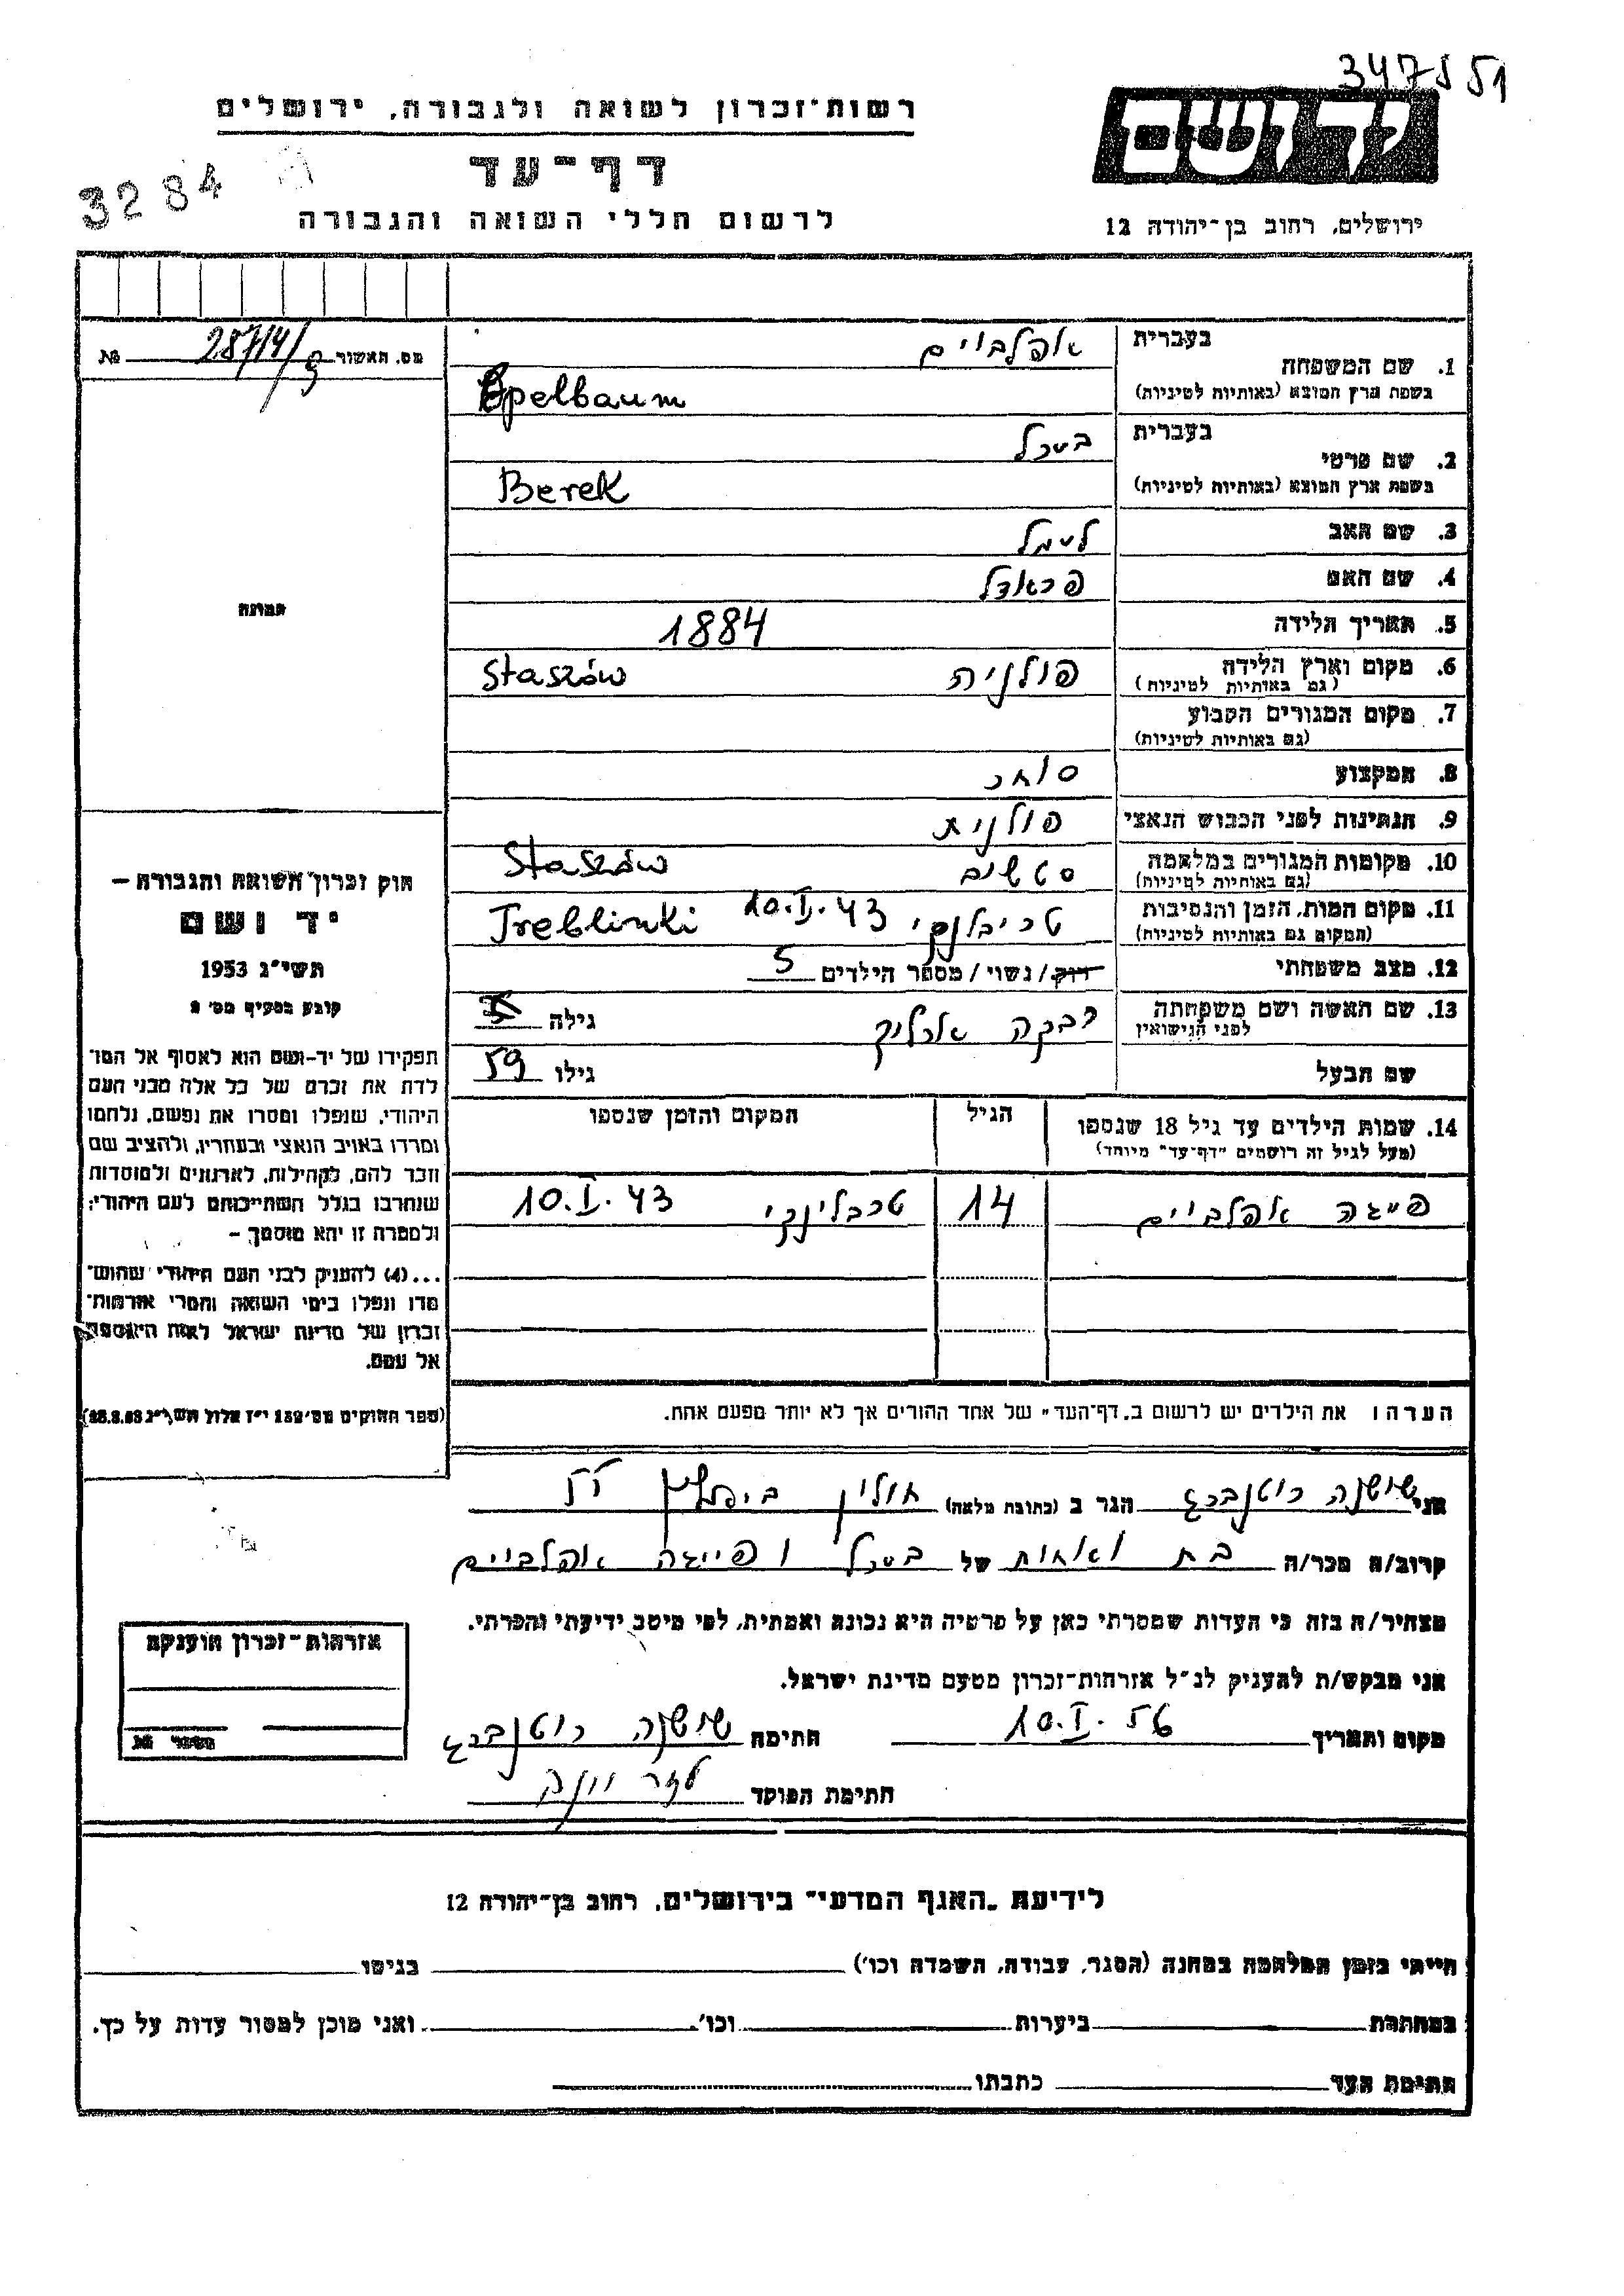 347551
יד ושם
ירושלים, רחוב בן-יהודה 12
רשות-זכרון לשואה ולגבורה, ירושלים
דף-עד
לרשום חללי השואה והגבורה
3284
מס. האשור 28714/ № 
1. שם המשפחה
בעברית אפלבוים
בשפת ארץ המוצא (באותיות לטיניות) Epelbaum
2. שם פרטי
בעברית בערל
בשפת ארץ המוצא (באותיות לטיניות) Berek
3. שם האב לעמל
4. שם האם פראדל
5. תאריך הלידה 1884
6. מקום וארץ הלידה (גם באותיות לטיניות) פולניה Staszów
7. מקום המגורים הקבוע
(גם באותיות לטיניות)
8. המקצוע סוחר
9. הנתינות לפני הכבוש הנאצי פולנית
10. מקומות המגורים במלחמה (גם באותיות לטיניות) סטשוב Staszów
11. מקום המות, הזמן והנסיבות (המקום גם באותיות לטיניות) טריבלנקי 10.I.43 Treblinki
12. מצב משפחתי רוק/נשוי/מספר הילדים 5
13. שם האשה ושם משפחתה לפני הנישואין רבקה גילה
שם הבעל גילו 59
14. שמות הילדים עד גיל 18 שנספו
(מעל לגיל זה רושמים "דף-עד" מיוחד)
הגיל
המקום והזמן שנספו
פייגה אפלבוים 14 טרבלינקי 10.I.43
הערה: את הילדים יש לרשום ב"דף-העד" של אחד ההורים אך לא יותר מפעם אחת.
תמונה
חוק זכרון השואה והגבורה –
יד ושם
תשי"ג 1953
קובע בסעיף מס' 2
תפקידו של יד-ושם הוא לאסוף אל המו־
לדת את זכרם של כל אלה מבני העם
היהודי, שנפלו ומסרו את נפשם, נלחמו
ומרדו באויב הנאצי ובעוזריו, ולהציב שם
וזכר להם, לקהילות, לארגונים ולמוסדות
שנחרבו בגלל השתייכותם לעם היהודי;
ולמטרה זו יהא מוסמך –
...(4) להעניק לבני העם היהודי שהוש־
מדו ונפלו בימי השואה והמרי אזרחות־
זכרון של מדינת ישראל לאות היאספם
אל עמם.
(ספר החוקים מס' 132 י"ז אלול תשי"ג 28.8.53)
אני שושנה רוטנברג הגר ב (כתובת מלאה) חולון
קרוב/ה מכר/ה בת ואחות של בערל ופייגה אפלבוים
מצהיר/ה בזה כי העדות שמסרתי כאן על פרטיה היא נכונה ואמתית, לפי מיטב ידיעתי והכרתי.
אני מבקש/ת להעניק לנ"ל אזרחות-זכרון מטעם מדינת ישראל.
מקום ותאריך 10.I.56 חתימה שושנה רוטנברג
חתימת הפוקד
אזרחות-זכרון הוענקה
מספר №
לידיעת "האגף המדעי" בירושלים, רחוב בן-יהודה 12
הייתי בזמן המלחמה במחנה (הסגר, עבודה, השמדה וכו') בגיטו
במחתרת ביערות וכו'. ואני מוכן למסור עדות על כך.
חתימת העד כתבתו